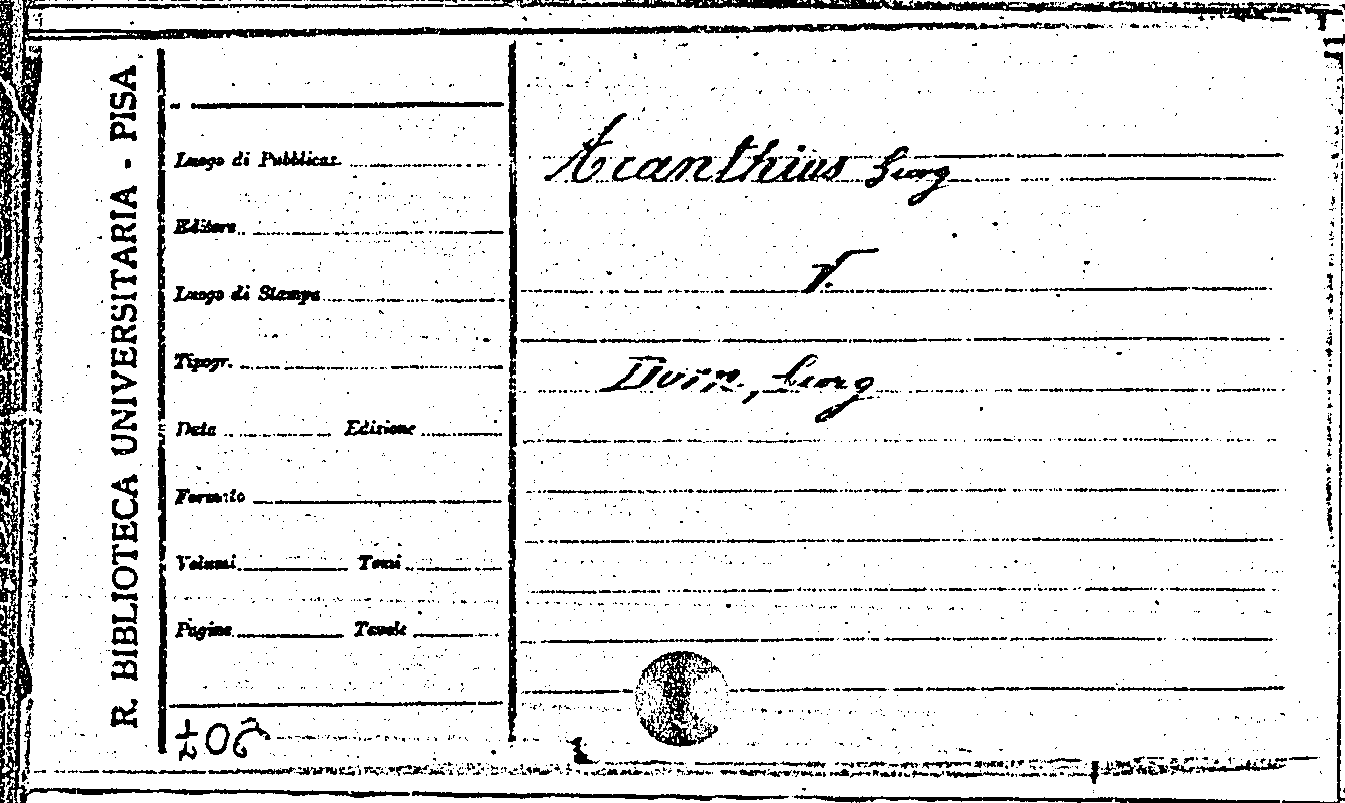 R. BIBLIOTECA UNIVERSITARIA - PISA
Luogo di Pubblicaz.
Editore
Luogo di Stampa
Tipogr.
Data Edizione
Formato
Volumi Tomi
Pagine Tavole
Acanthius Georg
V.
Dorn, Georg